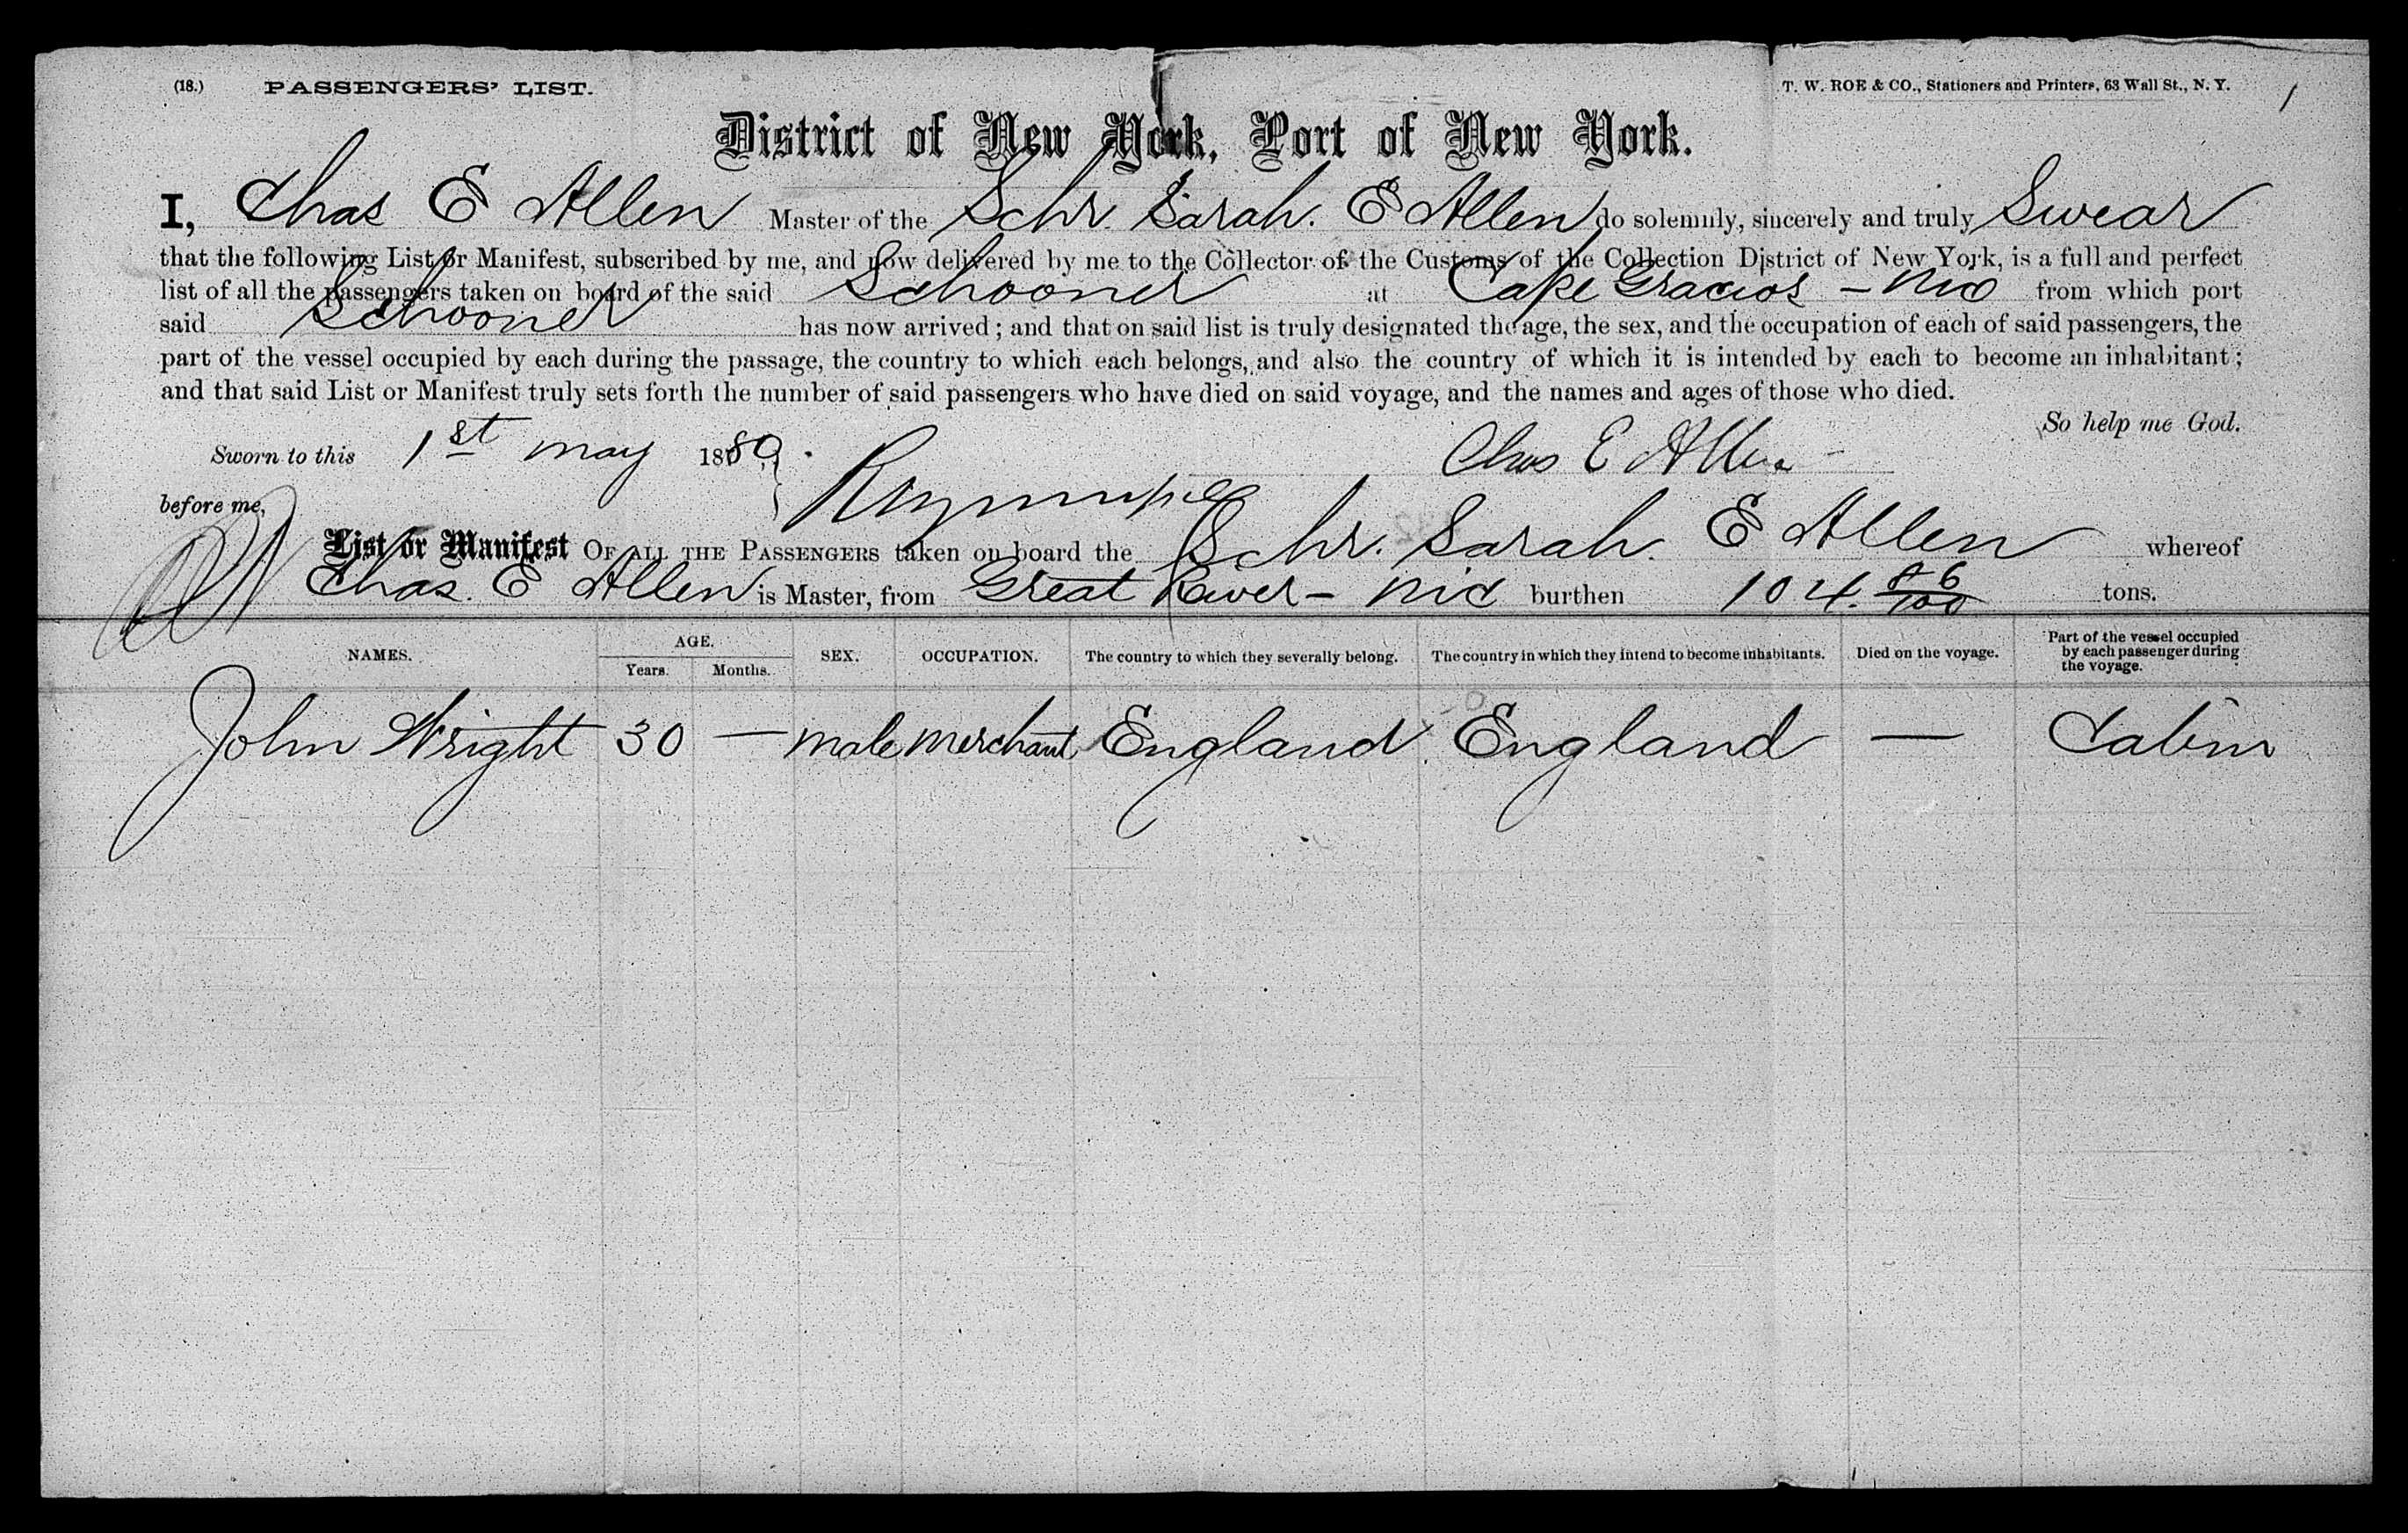 (18.) PASSENGERS' LIST. T. W. ROE & CO., Stationers and Printers, 63 Wall St., N. Y. 1
District of New York, Port of New York.
I, Chas E Allen Master of the Schr. Sarah. E Allen do solemnly, sincerely and truly Swear
that the following List or Manifest, subscribed by me, and now delivered by me to the Collector of the Customs of the Collection District of New York, is a full and perfect
list of all the passengers taken on board of the said Schooner at Cape Gracios - Nic from which port
said Schooner has now arrived; and that on said list is truly designated the age, the sex, and the occupation of each of said passengers, the
part of the vessel occupied by each during the passage, the country to which each belongs, and also the country of which it is intended by each to become an inhabitant;
and that said List or Manifest truly sets forth the number of said passengers who have died on said voyage, and the names and ages of those who died.
So help me God.
Sworn to this 1st May 1889. Chas E Allen
before me,
List or Manifest OF ALL THE PASSENGERS taken on board the Schr. Sarah. E Allen whereof
Chas. E Allen is Master, from Great River - Nic burthen 104. 86/100 tons.
NAMES. AGE. Years. Months. SEX. OCCUPATION. The country to which they severally belong. The country in which they intend to become inhabitants. Died on the voyage. Part of the vessel occupied by each passenger during the voyage.
John Wright 30 — male merchant England England — Cabin